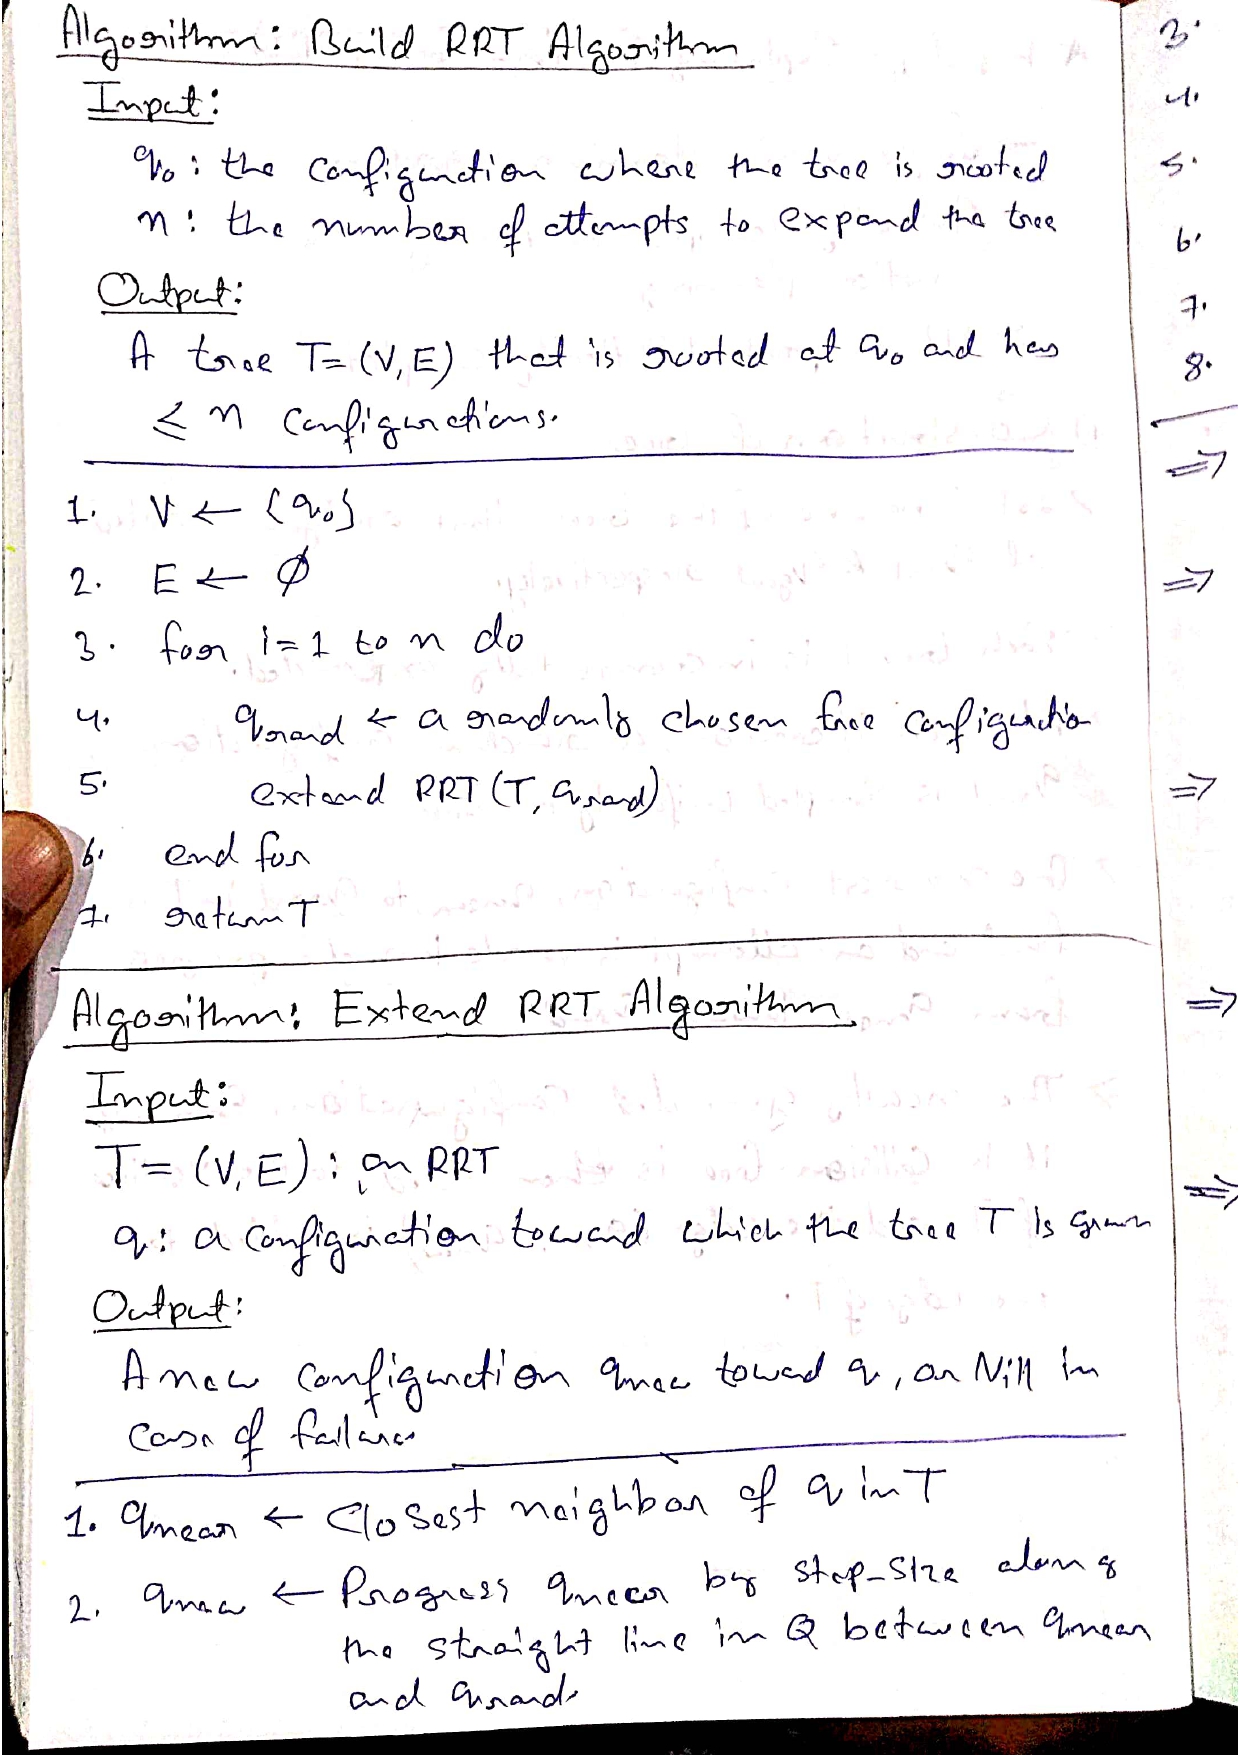 Algorithm: Build RRT Algorithm
Input:
q₀: the configuration where the tree is rooted
n: the number of attempts to expand the tree
Output:
A tree T=(V,E) that is rooted at q₀ and has
≤ n configurations.
1. V ← {q₀}
2. E ← Ø
3. for i=1 to n do
4. qrand ← a randomly chosen free configuratio
5. extend RRT (T, qrand)
6. end for
7. return T
Algorithm: Extend RRT Algorithm
Input:
T=(V,E): an RRT
q: a configuration toward which the tree T is grown
Output:
A new configuration qnew toward q, or Nill in
case of failure
1. qnear ← Closest neighbor of q in T
2. qnew ← Progress qnear by step_size along
the straight line in Q between qnear
and qrand.
3.
4.
5.
6.
7.
8.
⇒
⇒
⇒
⇒
⇒